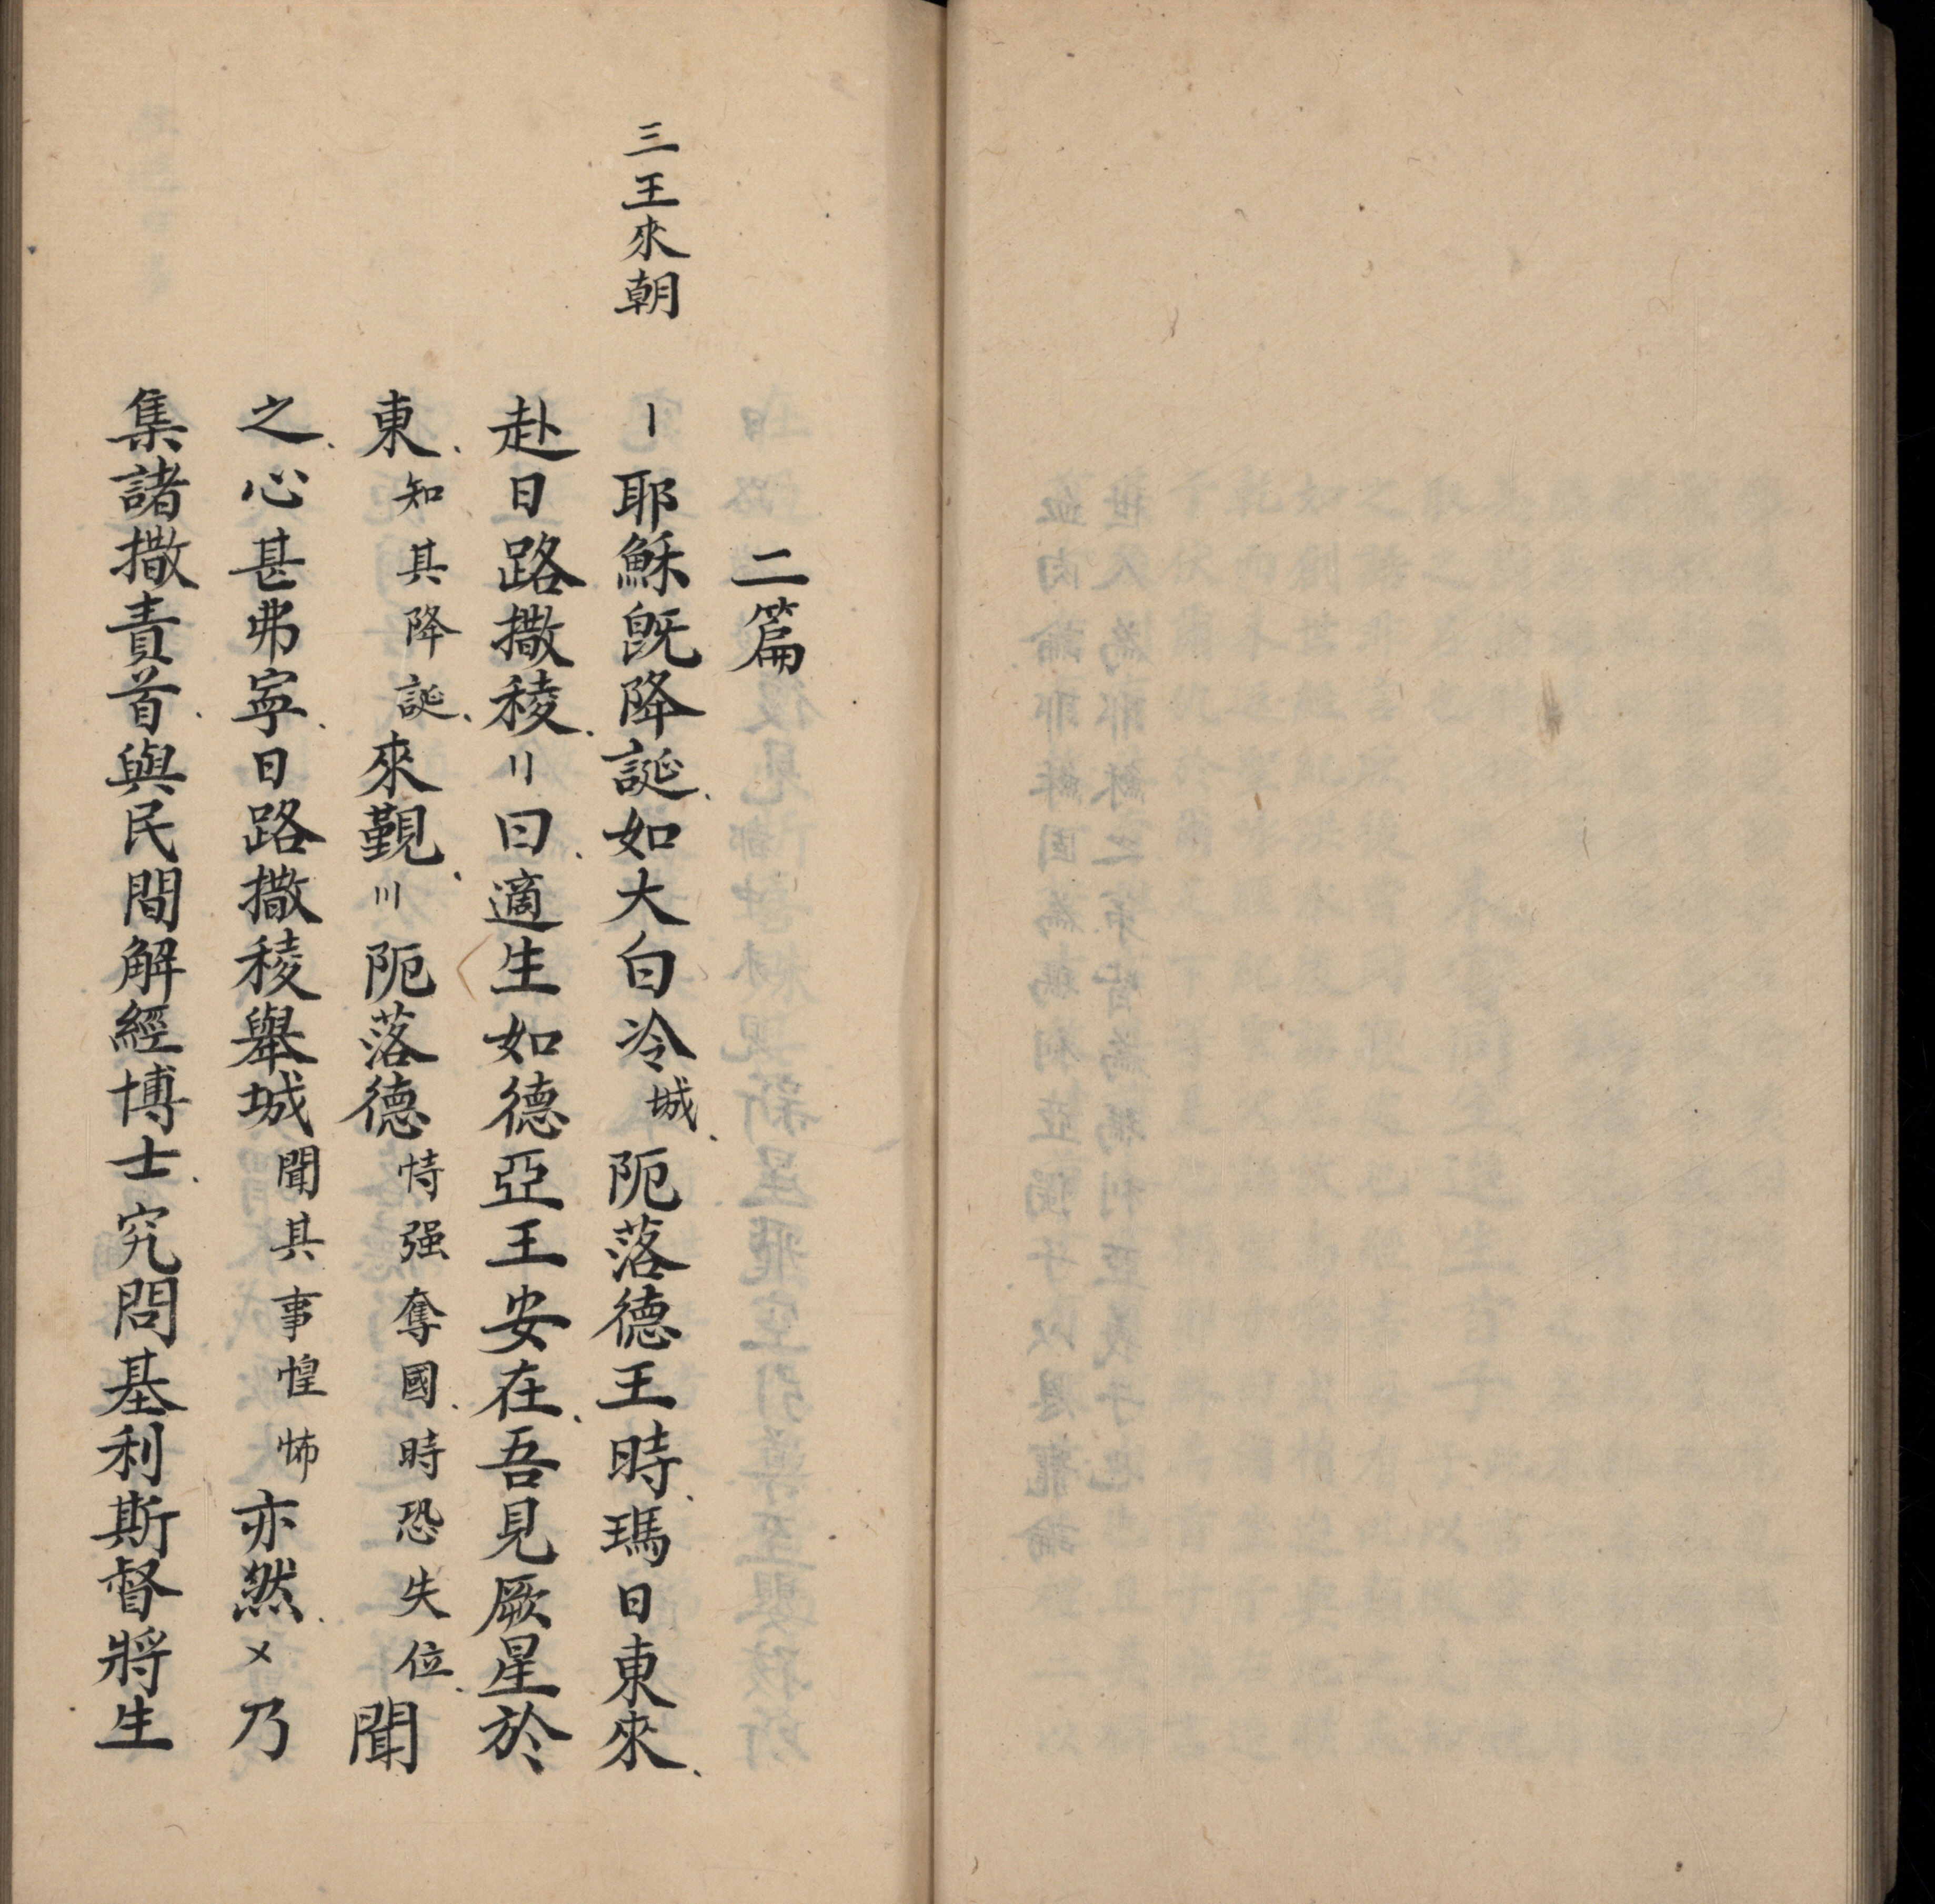 二篇
三王來朝
〡耶穌既降誕、如大白冷城、阨落德王時、瑪日東來、
赴日路撒稜、〢曰、適生如德亞王安在、吾見厥星於
東、知其降誕、來覲、〣阨落德恃强奪國、時恐失位、聞
之、心甚弗寜、日路撒稜舉城聞其事惶怖亦然、〤乃
集諸撒責首、與民間解經博士、究問基利斯督將生